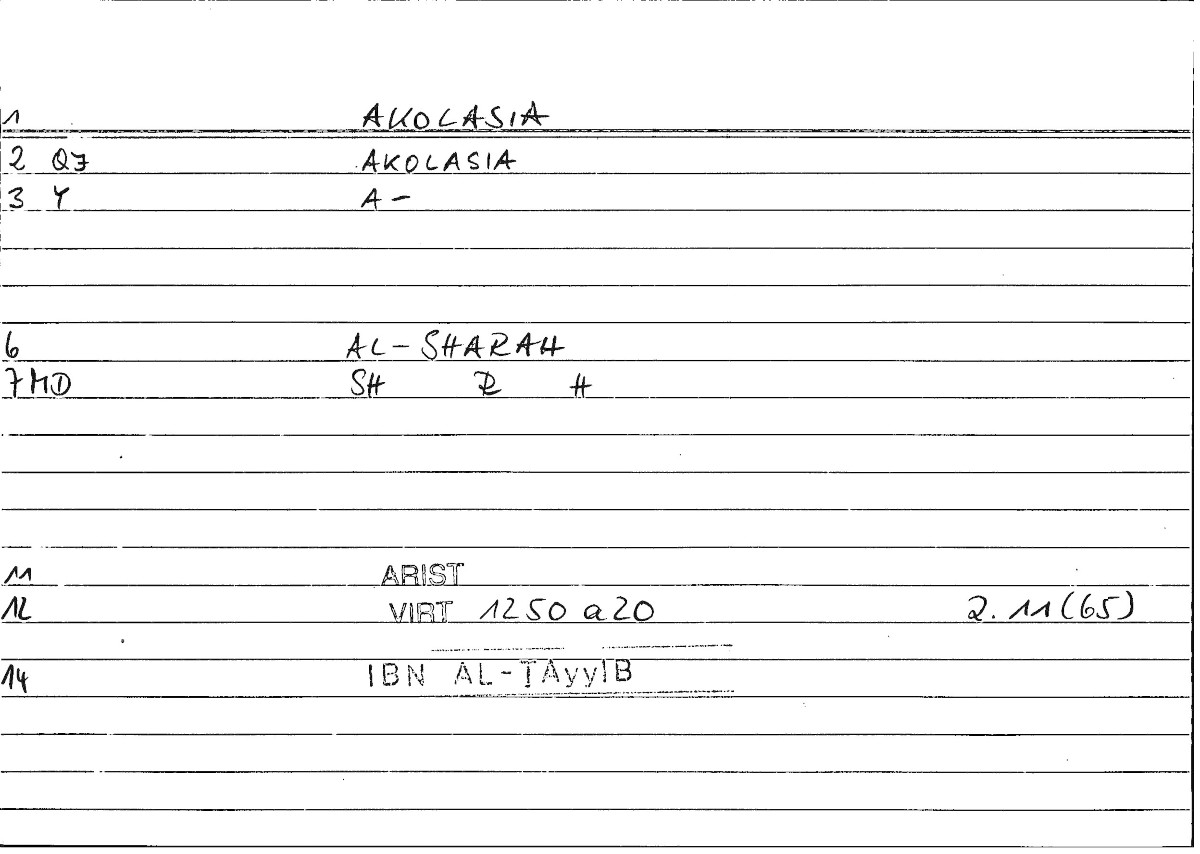 1 AKOLASIA
2 QJ AKOLASIA
3 Y A-
6 AL-SHARAH
7 MD SH R H
11 ARIST
12 VIRT 1250 a20 2.11(65)
14 IBN AL-ṬAyyIB